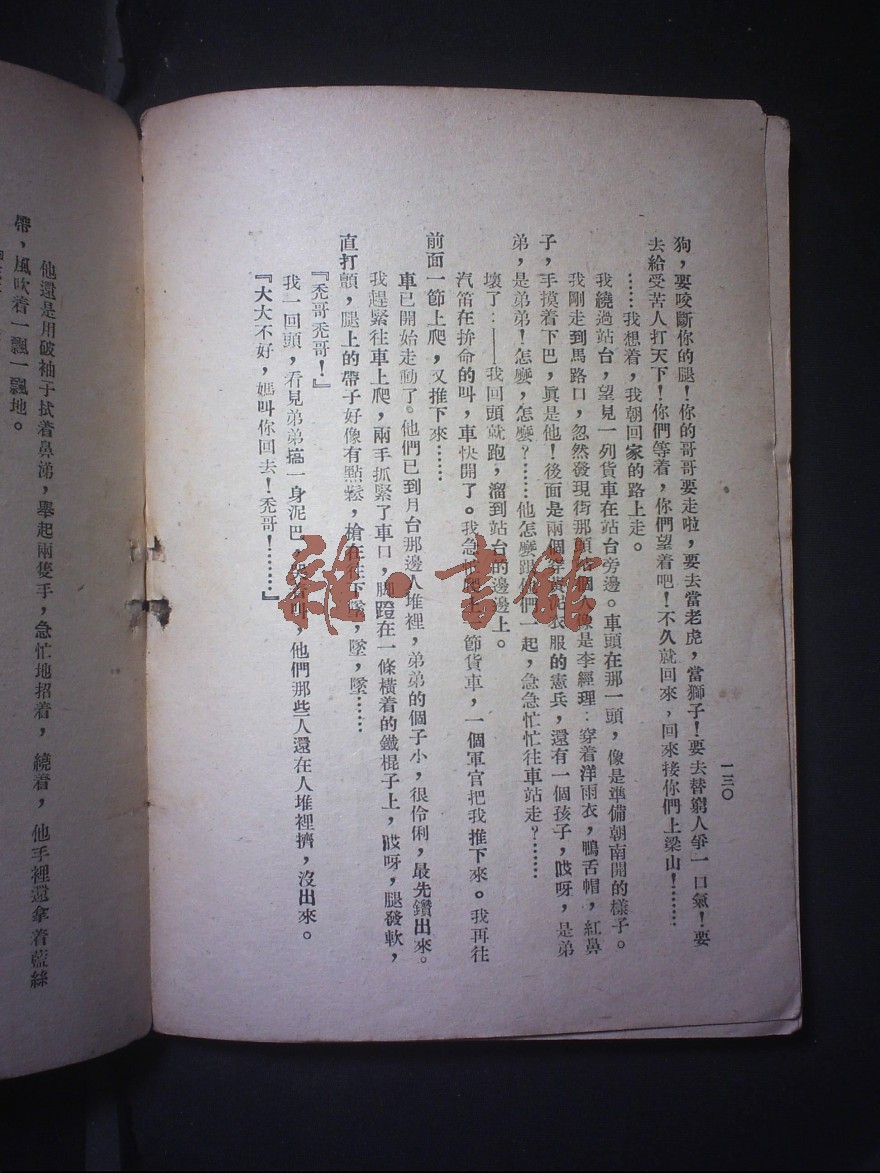 一三〇
狗，要咬斷你的腿！你的哥哥要走啦，要去當老虎，當獅子！要去替窮人爭一口氣！要
去給受苦人打天下！你們等着，你們望着吧！不久就回來，回來接你們上梁山！……
……我想着，我朝回家的路上走。
我繞過站台，望見一列貨車在站台旁邊。車頭在那一頭，像是準備朝南開的樣子。
我剛走到馬路口，忽然發現街那頭 個人像是李經理：穿着洋雨衣，鴨舌帽，紅鼻
子，手摸着下巴，眞是他！後面是兩個穿黃 衣服的憲兵，還有一個孩子，哎呀，是弟
弟，是弟弟！怎麼，怎麼？……他怎麼跟他們一起，急急忙忙往車站走？……
壞了：——我回頭就跑，溜到站台的邊邊上。
汽笛在拚命的叫，車快開了。我急忙爬上 節貨車，一個軍官把我推下來。我再往
前面一節上爬，又推下來……
車已開始走動了。他們已到月台那邊人堆裡，弟弟的個子小，很伶俐，最先鑽出來。
我趕緊往車上爬，兩手抓緊了車口，脚蹬在一條橫着的鐵棍子上，哎呀，腿發軟，
直打顫，腿上的帶子好像有點鬆，槍在往下墜，墜，墜……
『禿哥禿哥！』
我一回頭，看見弟弟搞一身泥巴， ，他們那些人還在人堆裡擠，沒出來。
『大大不好，媽叫你回去！禿哥！……』
他還是用破袖子拭着鼻涕，舉起兩隻手，急忙地招着，繞着，他手裡還拿着藍絲
帶，風吹着一飄一飄地。
雜·書館